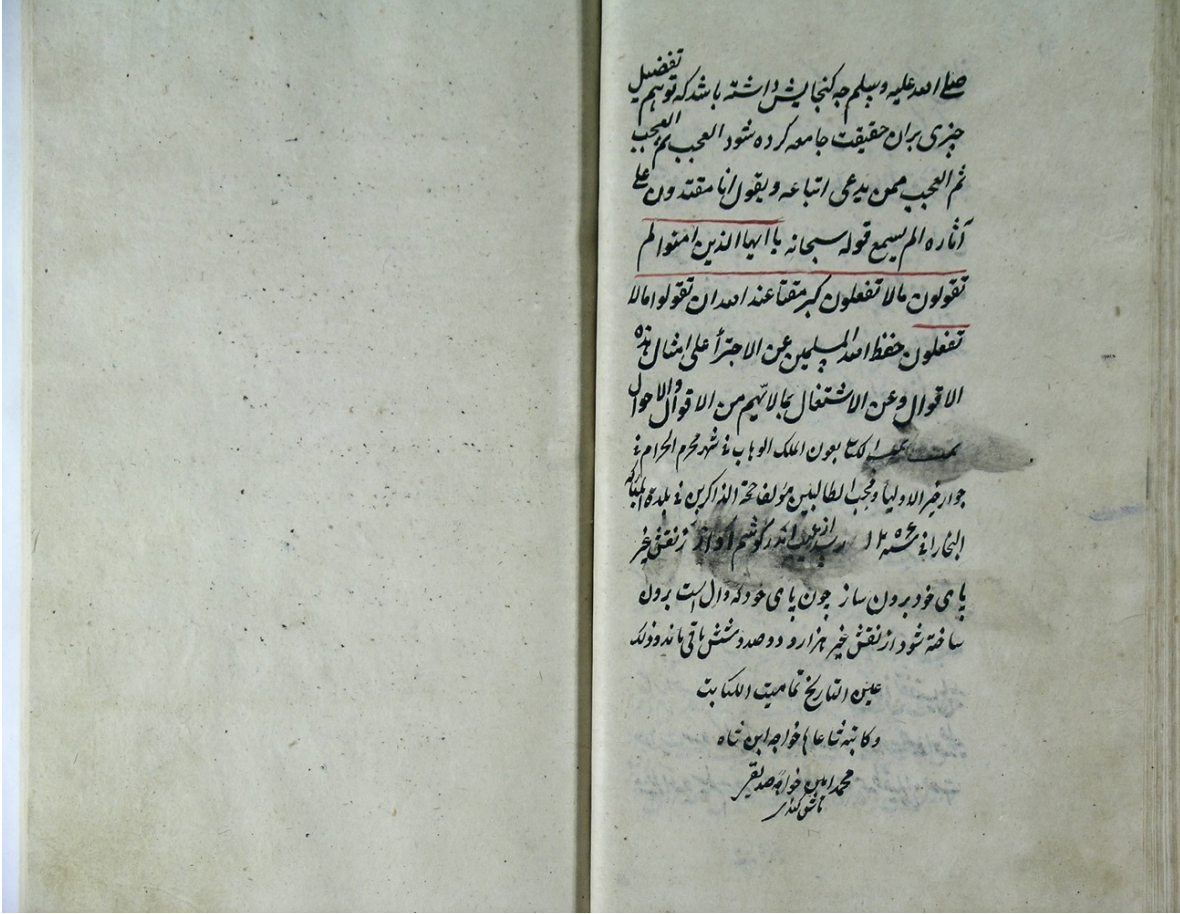 صلے الله علیه وسلم چه کنجایش داشته باشد که توهم تفضیل
چیزی بران حقیقت جامعه کرده شود العجب ثم العجب
ثم العجب ممن یدعی اتباعه ویقول انا مقتدون علے
آثاره الم یسمع قوله سبحانه یا ایها الذین امنوا لم
تقولون مالا تفعلون کبر مقتا عند الله ان تقولوا مالا
تفعلون حفظ الله المسلمین عن الاجترأ علی امثال هذه
الاقوال وعن الاشتغال بمالا یهم من الاقوال والاحوال
تمت بعون الملک الوهاب فے شهر محرم الحرام فے
جوار خیر الاولیا ومحب الطالبین مؤلف الذاکرین فے بلدة المبارکه
البخارا فے سنه اندر گوشم آواز ز نقش غیر
پای خود برون ساز چون پای خود که دال است برون
ساخته شود از نقش غیر هزار و دوصد و شش باقی ماند وذلک
عین التاریخ تمامیت الکتابت
وکاتبه خواجه ابن شاه
محمد امین خواجه صدیقی
تاشکندی